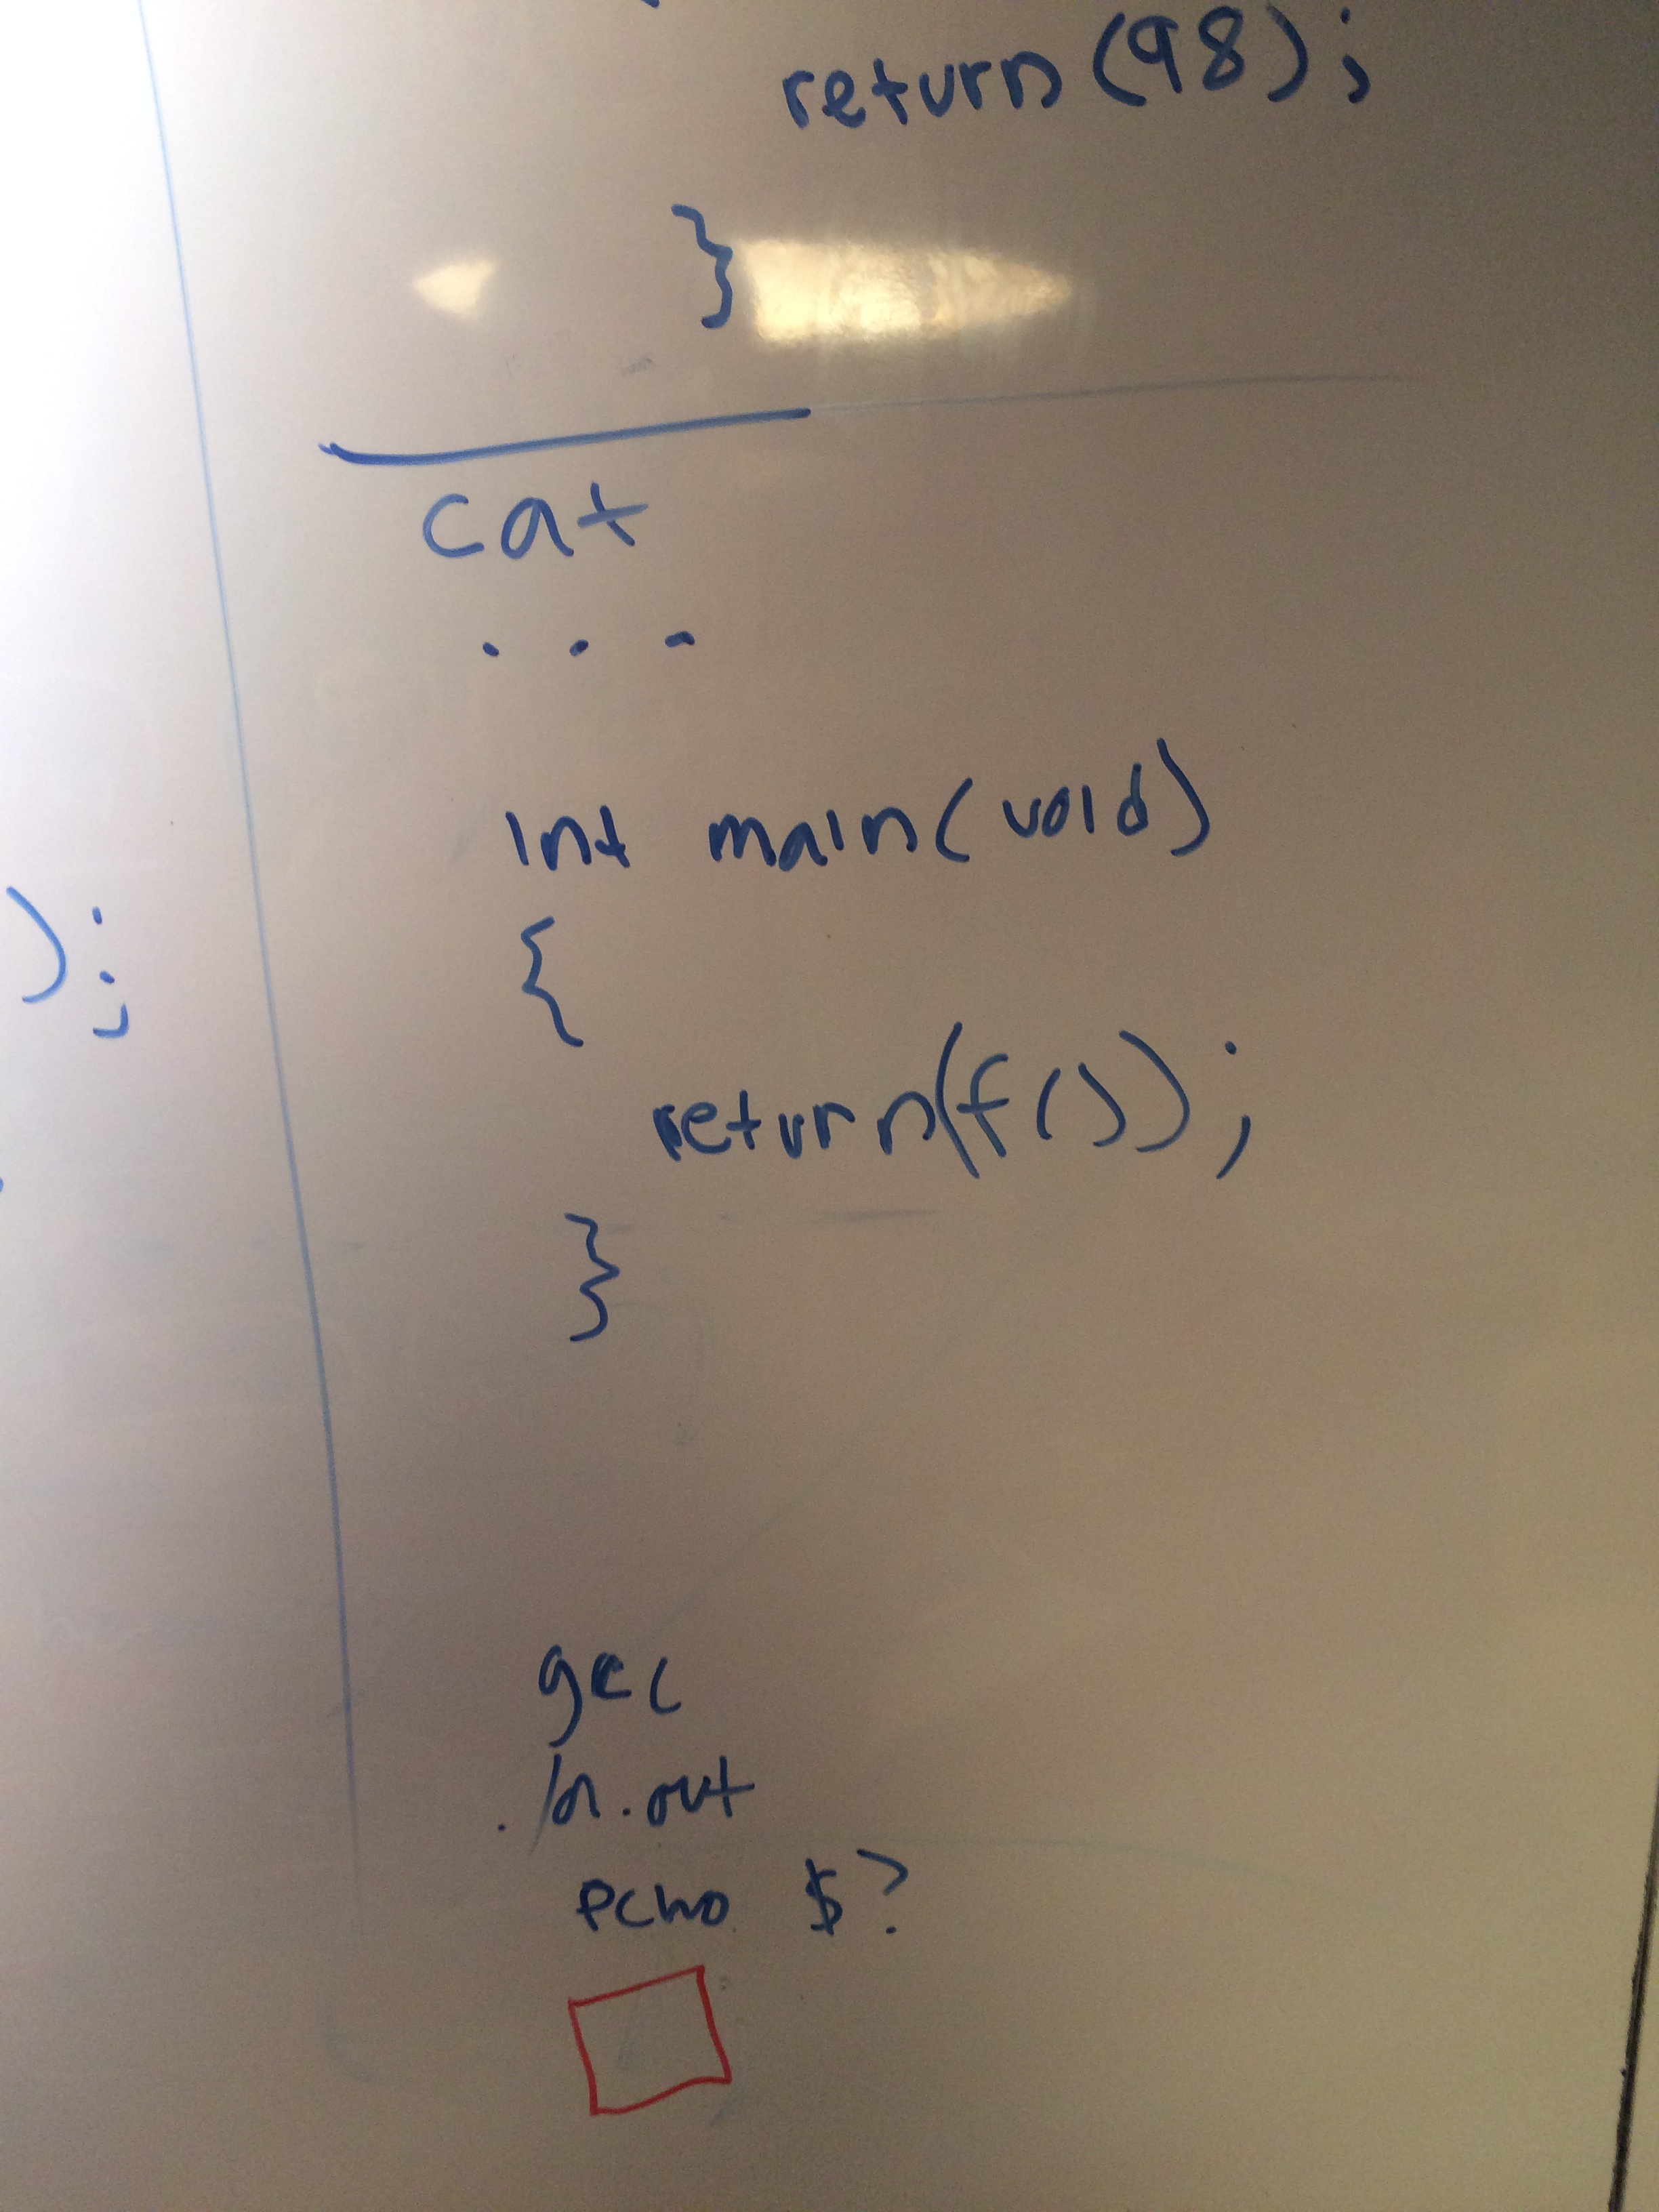 return(98);
}
cat
...
int main(void)
{
return(f());
}
);
gcc
./a.out
echo $?